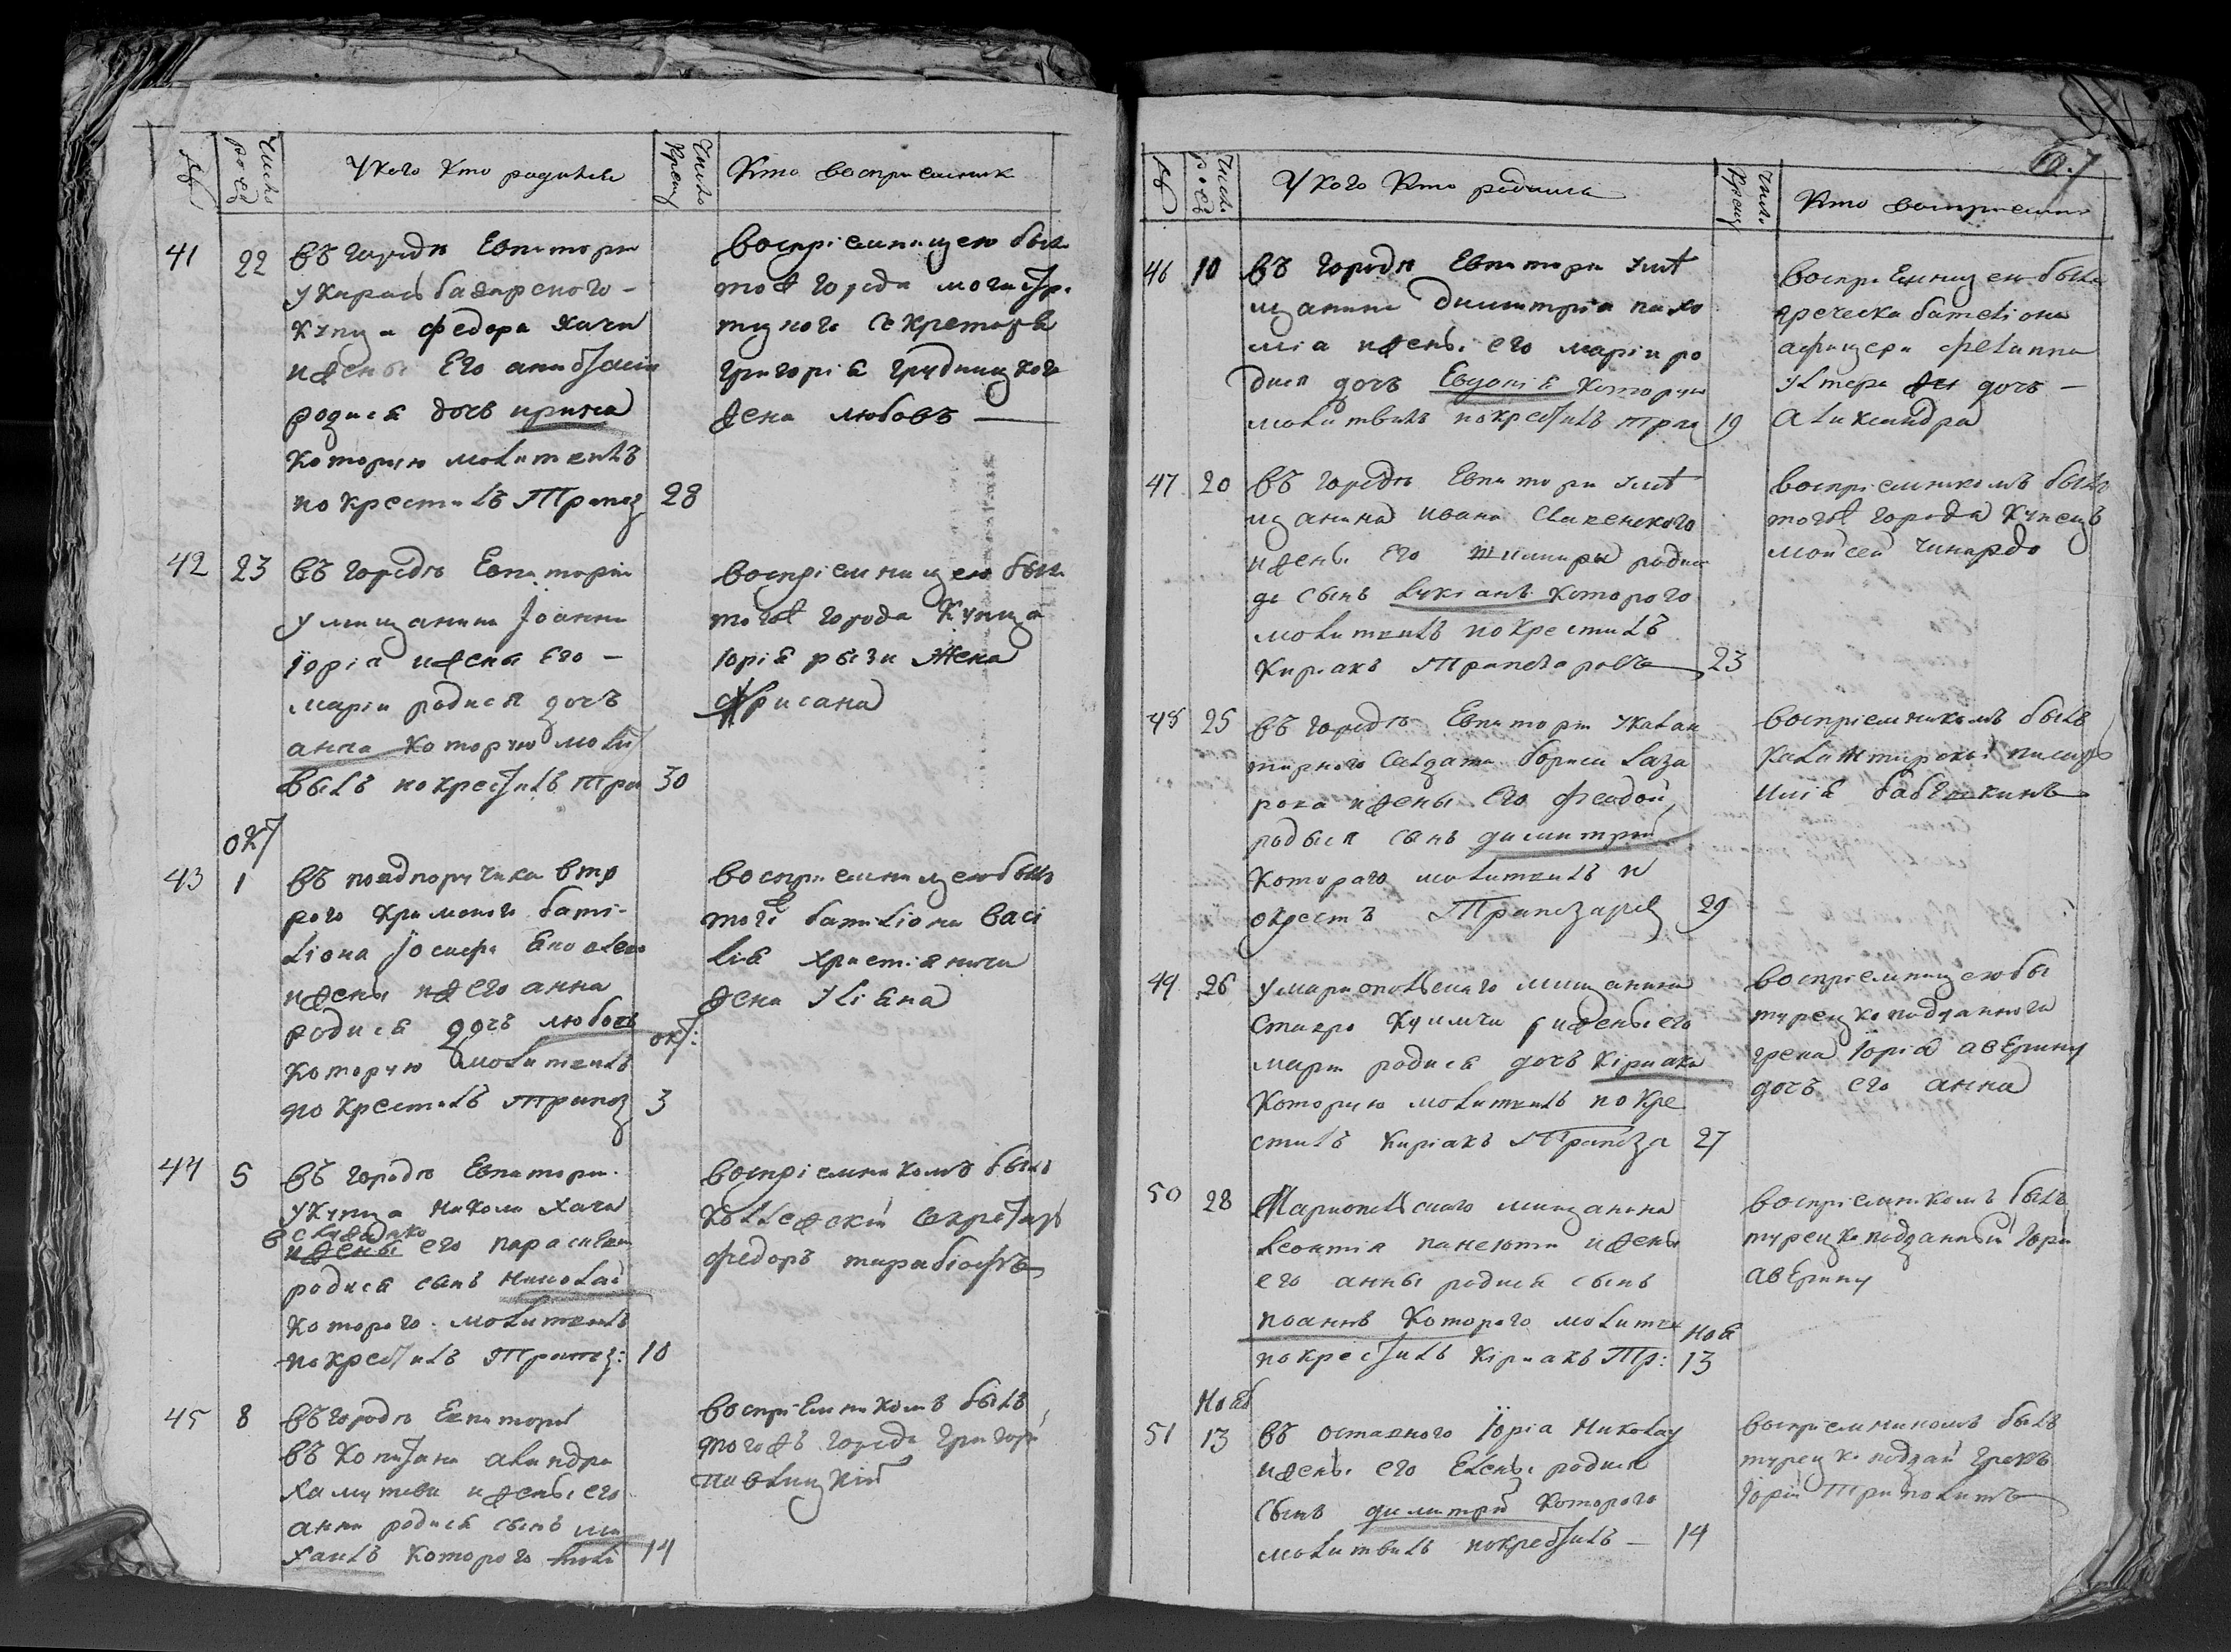 №
Число рожд
У кого кто родился
Число крещ
Кто восприемник
41 22
въ городѣ Евпатори
у карасьбазарского
купца федора хачи
и жены Его
родися дочъ ирина
которую молитвилъ
покрестилъ Трапез 28
воспріемницею была
тоеж города магистра
тцкого Секретаря
григорія грудницкого
жена любовъ
42 23
въ городѣ Евпаторіи
у мищанина Іоанна
Іорія и жены Его
маріи родися дочъ
анна которую моли
вилъ покрестилъ тра 30
воспріемницею была
тогож города купца
Іорія рызи жена
хрисана
окт
43 1
въ подпоручика вто
рого кримского бата
ліона Іосифа
и жены его анна
родися дочъ любовъ
которую молитвилъ
покрестилъ трапез
окт: 3
восприемницею была
тогож баталіона васі
лія христіянича
жена уліяна
44 5
въ городѣ Евпатори
у купца Николи хачи
его параскеви
родися сынъ николай
которого молитвилъ
покрестилъ Трапез: 10
воспріемникомъ былъ
коллежскій Секретаръ
федоръ
45 8
въ городѣ Евпаторіи
въ капитана
и жены его
анни родися сынъ ми
хаилъ которого моли 14
воспріемникомъ былъ
тогожъ города Григорій
павлицкій
67
№
Число рожд
У кого кто родился
Число крещ
Кто восприемник
46 10
въ городѣ Евпатори у мѣ
щанина Димитрія пахо
мія и жены его маріи ро
дися дочъ Евдокія которую
молитвилъ покрестилъ тра 19
восприемницею была
греческа баталіона
афицера филиппа
дочъ
Александра
47 20
въ городѣ Евпатори у мѣ
щанина ивана
и жены Его родил
ся сынъ лукіанъ которого
молитвилъ покрестилъ
Кириакъ Трапезаровъ 23
воспріемникомъ былъ
тогож города купецъ
моисей чинардо
48 25
въ городѣ Евпатори у каран
тирного Салдата бориса лаза
рова и жены Его
родыся сынъ димитрій
которого молитвилъ и
окрестъ Трапезаров 29
воспріемникомъ былъ
писаръ
илія бабушкинъ
49 26
у мариополскаго мищанина
ставро куимчи и жены его
марии родися дочъ Кіриака
которую молитвилъ покре
стилъ Киріакъ Трапеза 27
воспріемницею бы
турецкоподданного
грека Іорія аверину
дочъ его анна
50 28
Мариополскаго мищанина
леонтія панеюти и жены
его анны родися сынъ
иоаннъ которого молитви
покрестилъ Кіриакъ Тр:
ноя 13
воспріемникомъ былъ
турецкоподданный Іорій
аверину
нояб
51 13
въ оставного Іоріа николау
и жены его Елены родися
сынъ димитрій которого
молитвилъ покрестилъ 14
воспріемникомъ былъ
турецкоподдай грекъ
Іорій Триполитъ